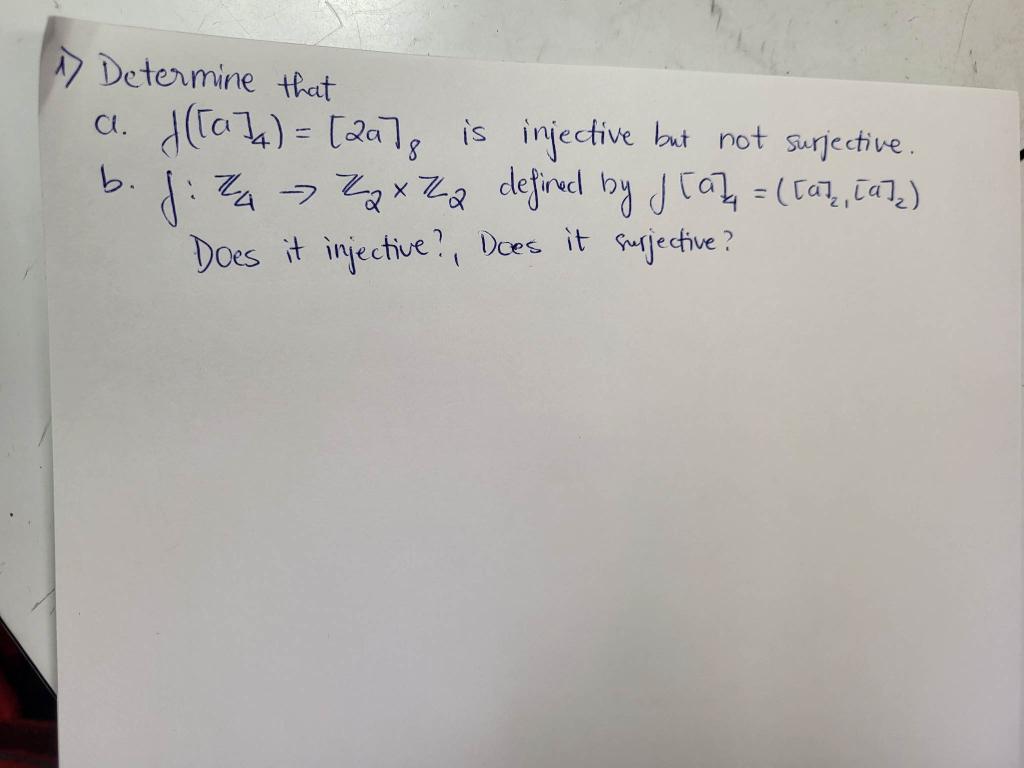 1) Determine that
a. f([a]₄) = [2a]₈ is injective but not surjective.
b. f: ℤ₄ → ℤ₂ × ℤ₂ defined by f [a]₄ = ([a]₂, [a]₂)
Does it injective?, Does it surjective?